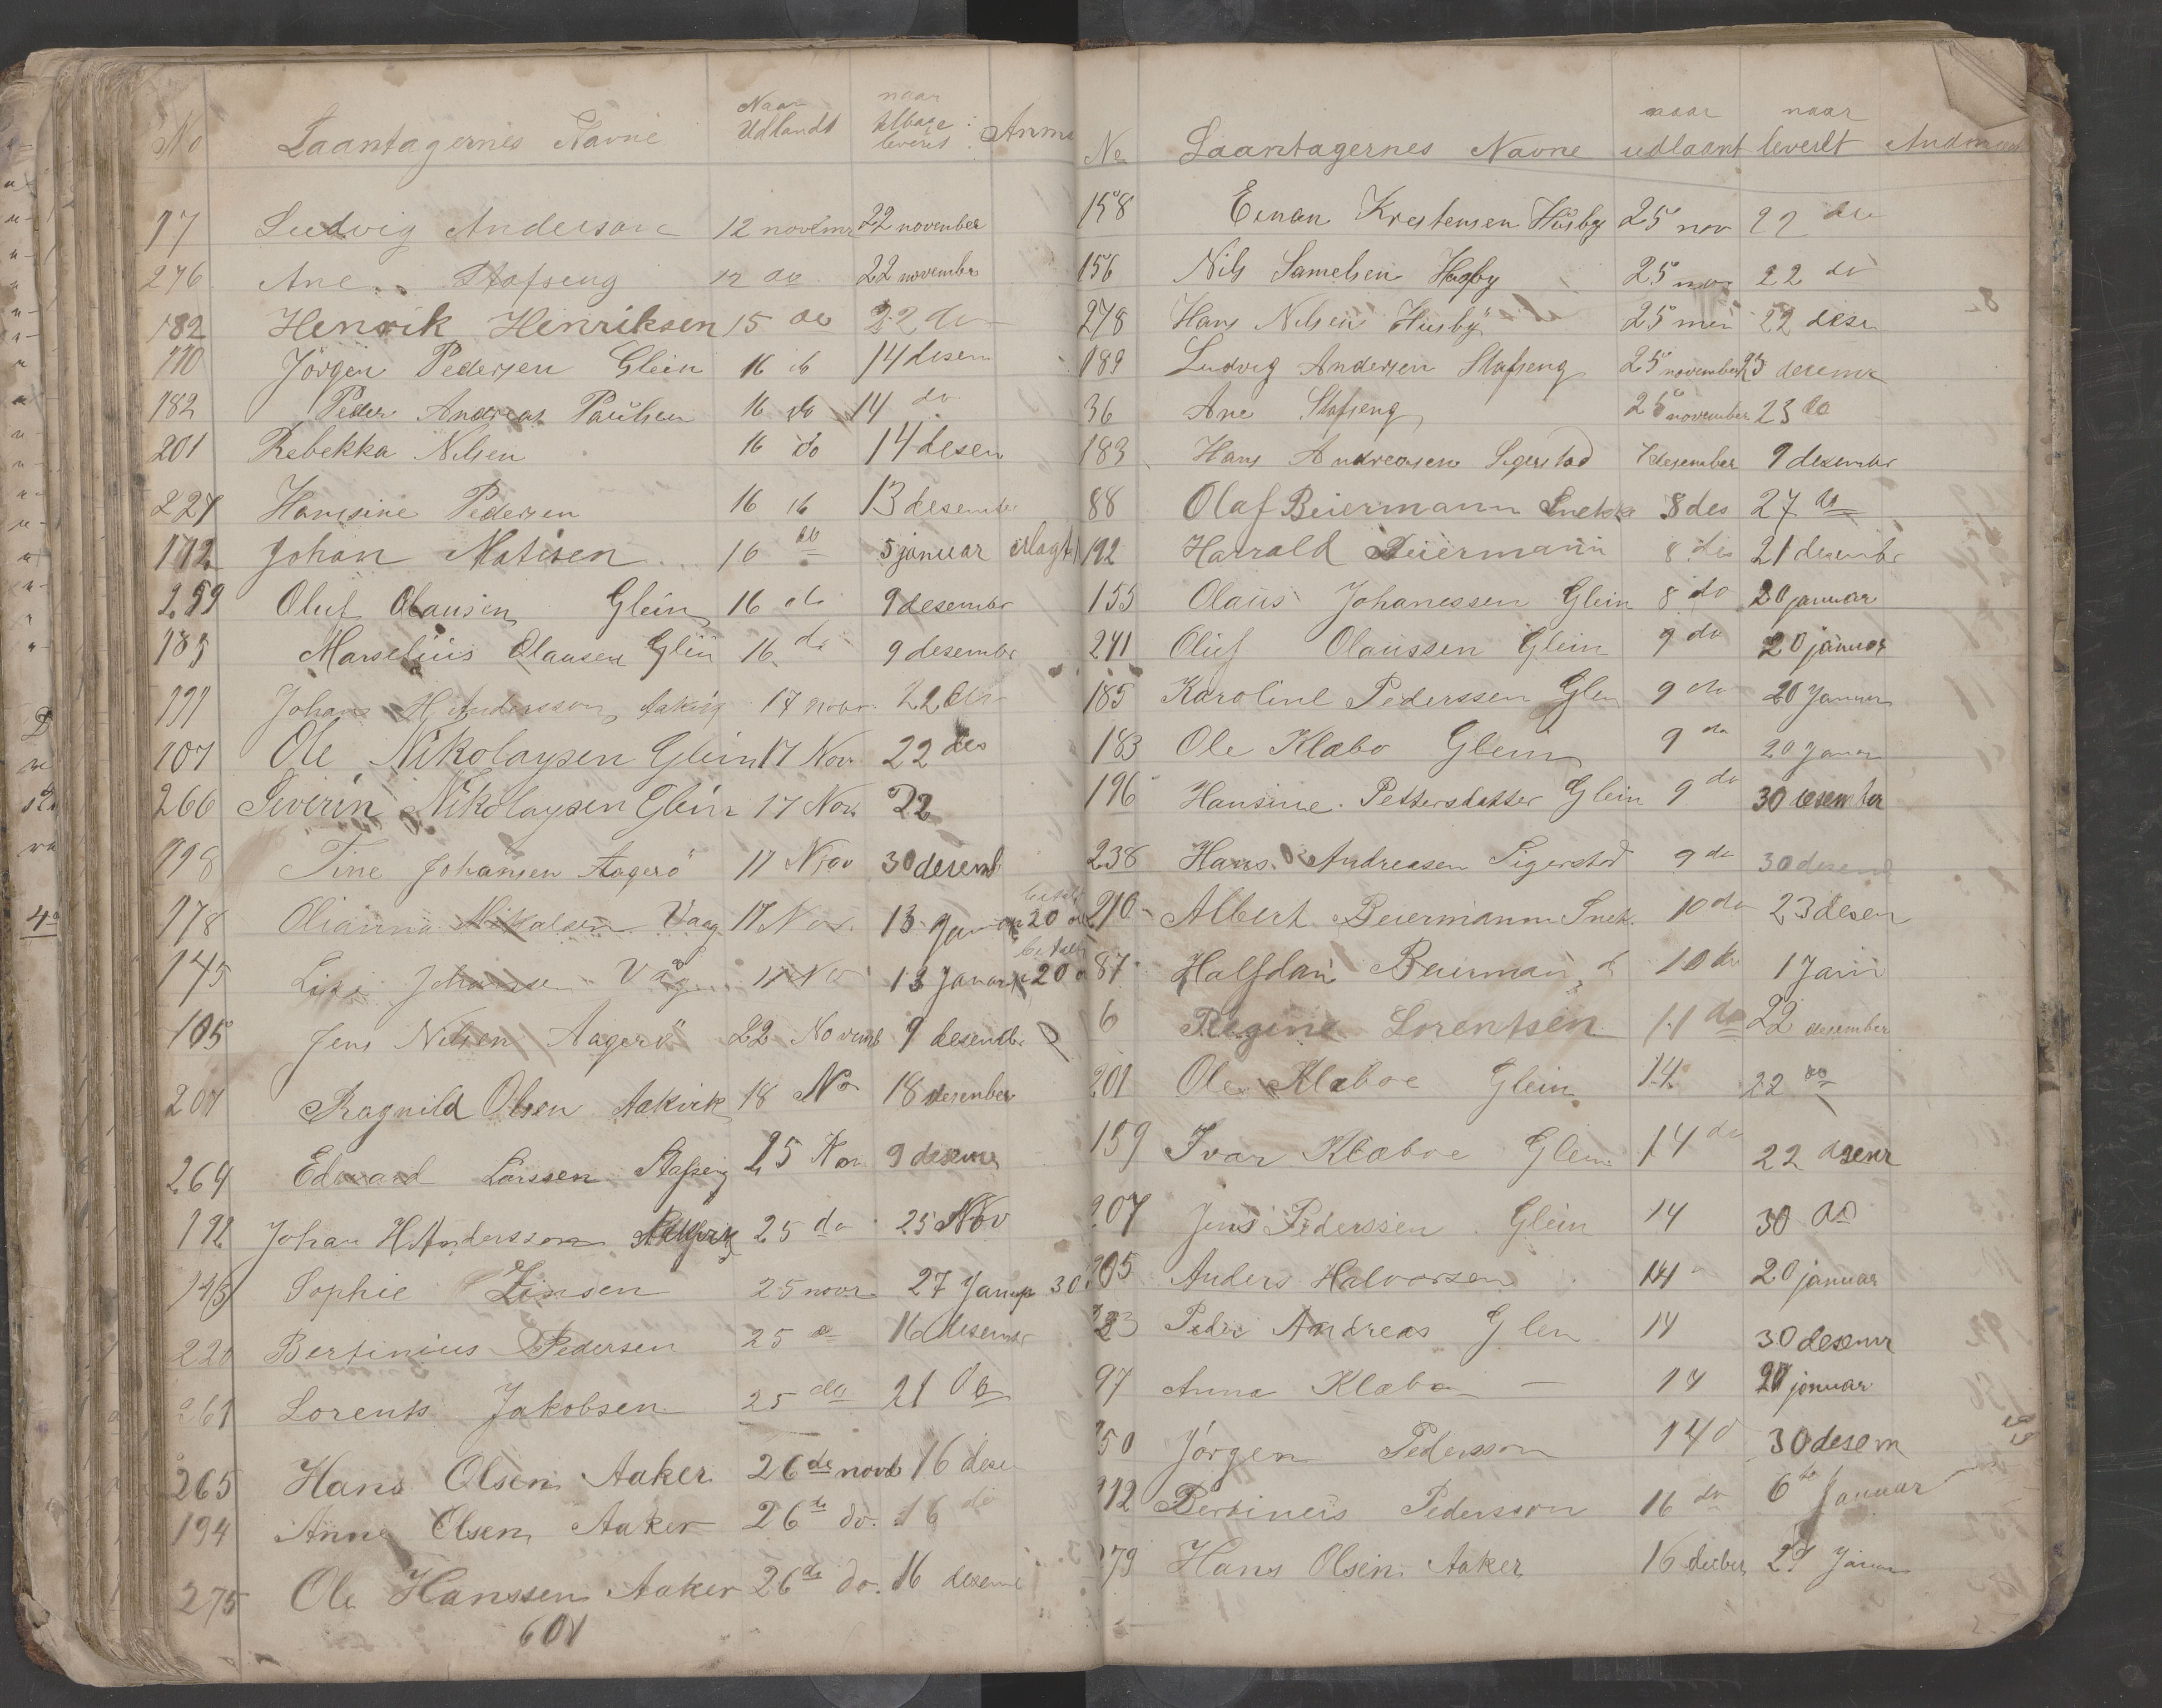 No Laantagernes Navne Naar Udlaandt naar tilbage leveret Anm
17 Ludvig Anderson 12 novemr 22 november
276 Ane Stafseng 12 do 22 novembr
182 Henrik Henriksen 15 do 22 do
110 Jörgen Pedersen Glein 16 do 14 desem
182 Peder Andreas Paulsen 16 do 14 do
201 Rebekka Nilsen 16 do 14 desem
227 Hansine Pedersen 16 do 13 desember
172 Johan Matisen 16 do 5 januar
259 Oluf Olausen Glein 16 do 9 desembr
185 Marselius Olausen Glein 16 do 9 desembr
191 Johan H Andersson Aakvig 17 novr 22 des
107 Ole Nikolaysen Glein 17 Nov 22 des
266 Severin Nikolaysen Glein 17 Nov 22
198 Tine Johansen Aagerö 17 Nov 30 desemb
178 Olianna Mikalsen Vaag 17 Nov. 13 Januar betalt 20
145 Johansen Våg 17 Nov 13 Januar betalt 20
105 Jens Nilsen Aagerö 22 Novemb 9 desembr
207 Ragnild Olsen Aakvik 18 No 18 desember
264 Edvard Larssen Stafseng 25 Nov 9 desemr
192 Johan H Andersson 25 do 25 Nov
145 Sophie Jensen 25 novr 27 Janua 30
220 Bertinius Pedersen 25 do 16 desembr
261 Lorents Jakobsen 25 do 21 do
265 Hans Olsen Aaker 26de novb 16 dese
194 Anne Olsen Aaker 26de do. 16 do
275 Ole Hanssen Aaker 26de do. 16 desem
601
No Laantagernes Navne naar udlaant naar leverlt
158 Einan Krestensen Husby 25 nov 22 do
156 Nils Samelsen Husby 25 nov 22 do
278 Hans Nilsen Husby 25 22 desem
189 Ludvig Andersen Stafseng 25 november 23 desemr
36 Ane Stafseng 25 november 23 do
183 Hans Andreasen Sigerstad 7 desember 9 desembr
88 Olaf Beiermann Snekk 8 des 27 do
192 Harrald Beiermann 8 des 21 desembr
155 Olaus Johanessen Glein 8 do 20 januar
241 Oluf Olaussen Glein 9 do 20 januar
185 Karoline Pederssen Glen 9 do 20 Januar
183 Ole Klæbo Glein 9 do 20 Januar
196 Hansine Pettersdatter Glein 9 do 30 desember
238 Hans Andreasen Sigerstad 9 do 30 desem
210 Albert Beiermann Snek. 10 do 23 desem
87 Halfdan Beierman 10 do 1 Janu
6 Regine Lorentsen 11 do 22 desember
201 Ole Klæboe Glein 14 22 do
159 Ivar Klæboe Glein 14 do 22 desemr
207 Jens Pederssen Glein 14 30 do
205 Anders Halvorsen 14 20 januar
Peder Andreas Glen 14 30 desemr
97 Anna Klæbo — 14 20 januar
250 Jörgen Pedersson 14 d 30 desem
212 Bertineis Pedersson 16 do 6te Januar
279 Hans Olsen Aaker 16 desber 27 Januar